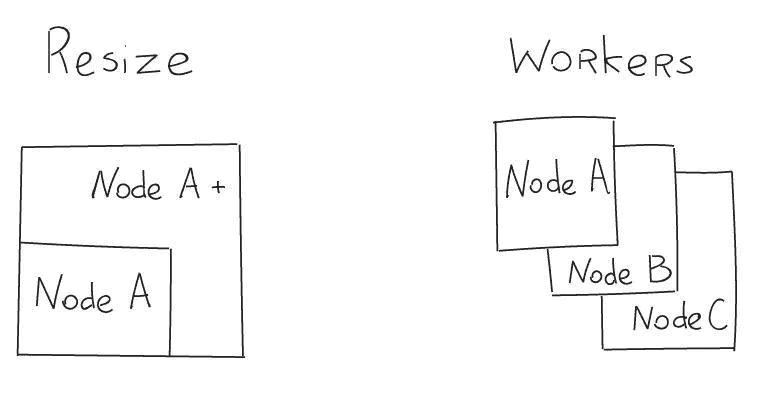 Resize
Node A+
Node A
Workers
Node A
Node B
Node C